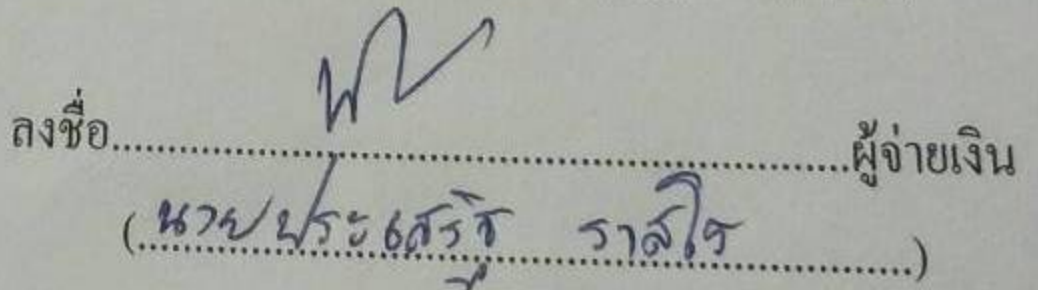 ลงชื่อ....................ผู้จ่ายเงิน
(นายประเสริฐ ราสไร)